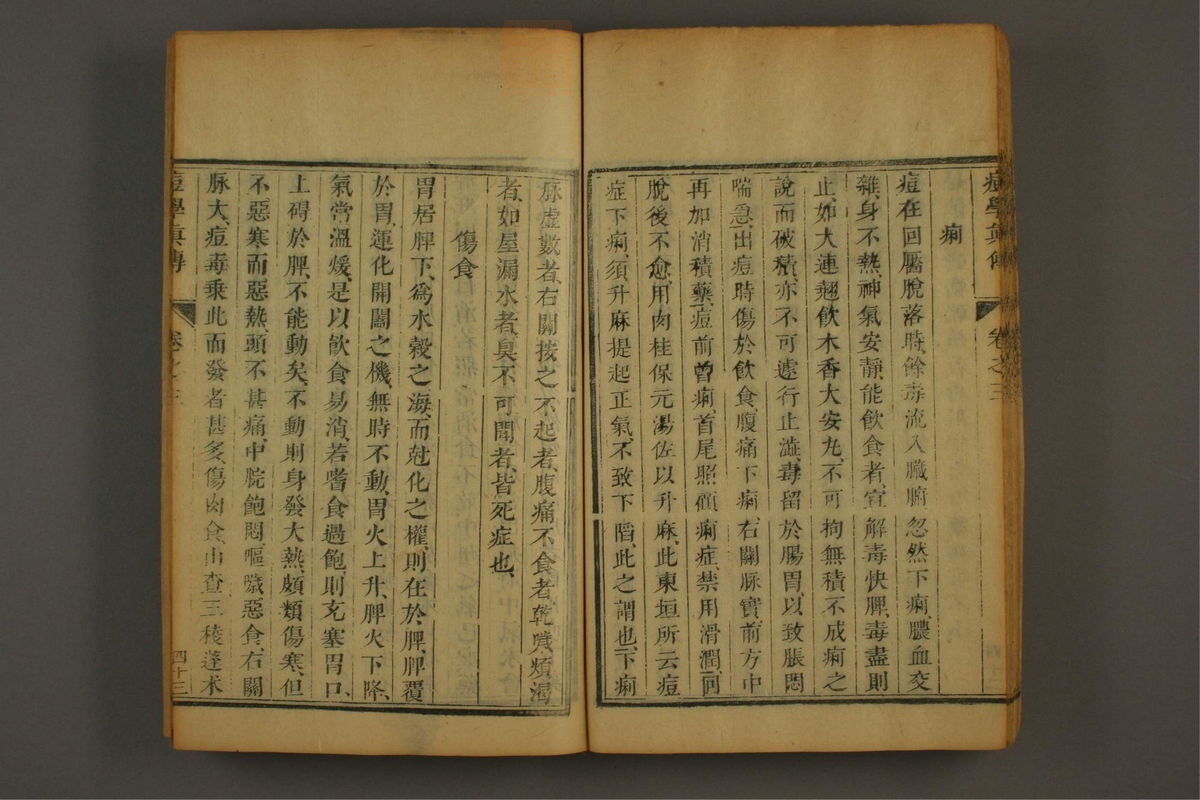 痘學眞傳 卷之三
痢
痘在回靨脫落時、餘毒流入臟腑、忽然下痢、膿血交
雜、身不熱、神氣安靜能飲食者、宜解毒快脾、毒盡則
止、如大連翹飲、木香大安丸、不可拘無積不成痢之
說而破積、亦不可遽行止澁、毒留於腸胃、以致脹悶
喘急、出痘時傷於飲食、腹痛下痢、右關脉實、前方中
再加消積藥、痘前曾痢、首尾照顧、痢症、禁用滑潤、回
脫後不愈、用肉桂保元湯佐以升麻、此東垣所云痘
症下痢、須升麻提起正氣、不致下陷、此之謂也、下痢
脉虛數者、右關按之不起者、腹痛不食者、乾嘔煩渴
者、如屋漏水者、臭不可聞者、皆死症也、
傷食
胃居脾下、爲水榖之海、而尅化之權、則在於脾、脾覆
於胃、運化開闔之機、無時不動、胃火上升、脾火下降、
氣常溫煖、是以飲食易消、若嗜食過飽、則充塞胃口、
上碍於脾、不能動矣、不動則身發大熱、頗類傷寒、但
不惡寒而惡熱、頭不甚痛、中脘飽悶、嘔噦惡食、右關
脉大、痘毒乘此而發者甚多、傷肉食、山查三稜蓬术
痘學眞傳 卷之三 四十三